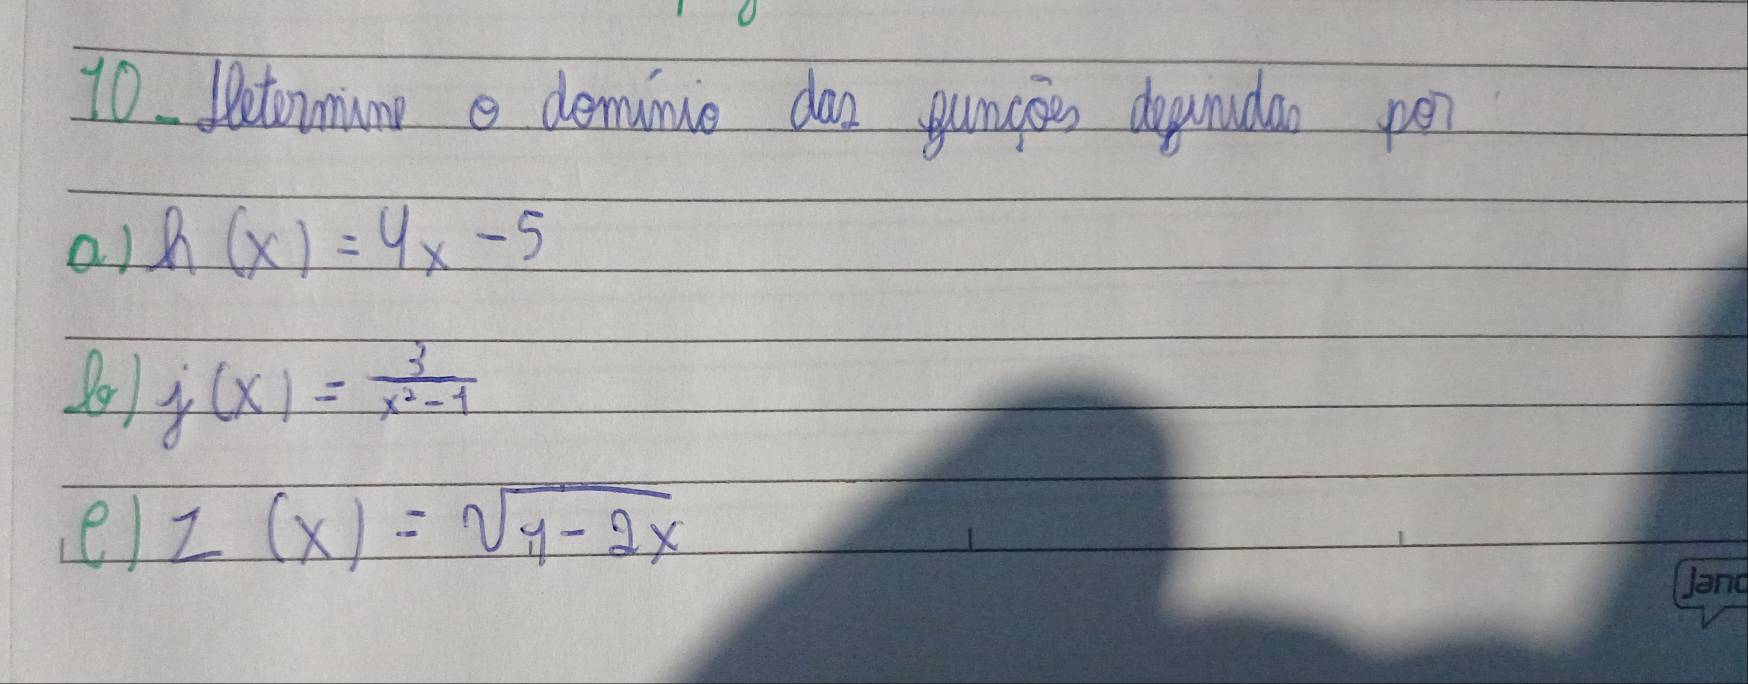 10- Determine o domínio das funções definidas por
a) h(x) = 4x - 5
b) j(x) = 3/(x² - 1)
e) z(x) = √(1 - 2x)
Jand